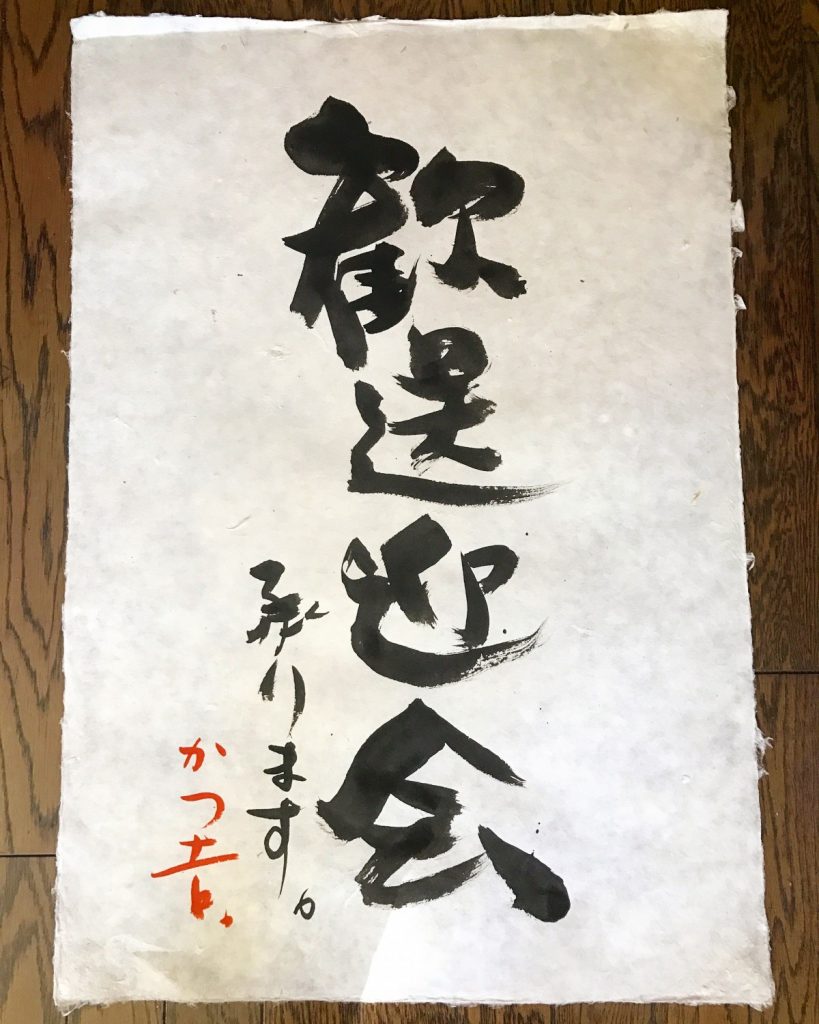 歓送迎会
承ります。
かつ吉。